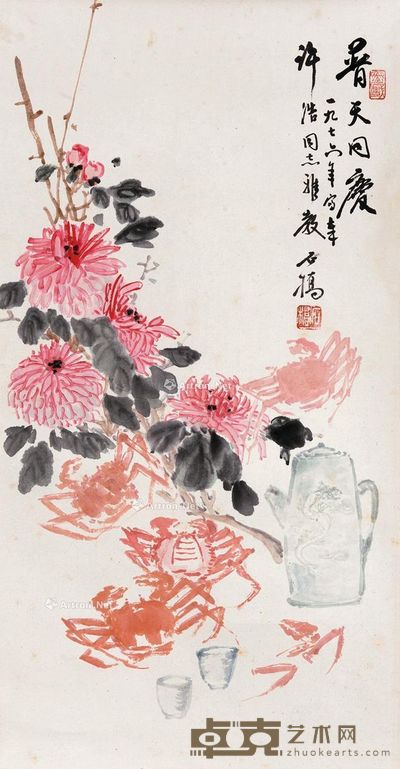 普天同庆
一九七六年写奉
许浩同志雅教 石桥
Artron.Net
Artron.Net
Artron.Net
Artron.Net
卓克艺术网
zhuokearts.com